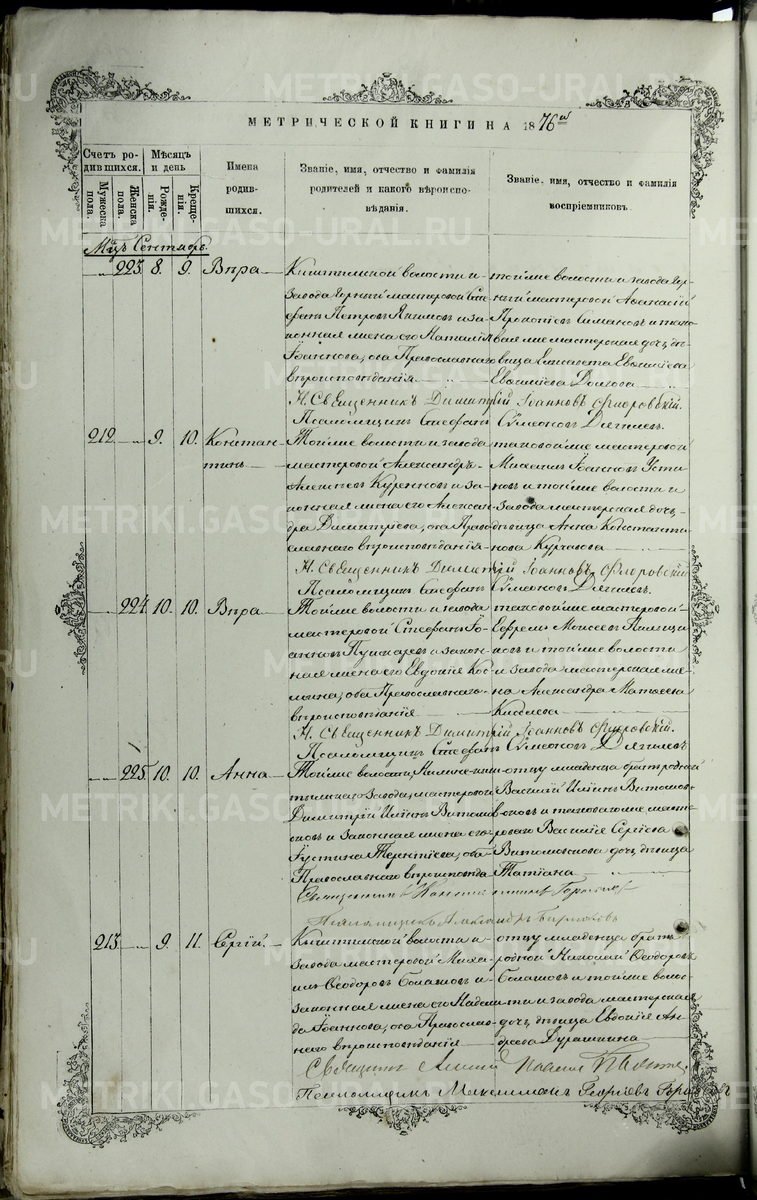 МЕТРИЧЕСКОЙ КНИГИ НА 1876й
Счетъ ро-
дившихся.
Мужеска пола.
Женска пола.
Мѣсяцъ
и день
Рожде-
нія.
Креще-
нія.
Имена
родив-
шихся.
Званіе, имя, отчество и фамилія
родителей и какого вѣроиспо-
вѣданія.
Званіе, имя, отчество и фамилія
воспріемниковъ.
Мцъ Сентябрь.
223. 8. 9. Вѣра
Кыштымской волости и
завода горный мастеровой Сте
фанъ Петровъ Якимовъ и за-
конная жена его Наталія
Іоаннова, оба Православнаго
вѣроисповѣданія.
тойже волости и завода гор
ный мастеровой Аѳанасій
Прокопіевъ Симаковъ и тако
вая же мастерская дочь дѣ-
вица Елисавета Евѳиміева
Евѳиміева Долгова
Н. Священникъ Димитрій Іоанновъ Флоровскій.
Псаломщикъ Стефанъ Сѵмеоновъ Дягилевъ.
212. 9. 10. Констан-
тинъ
Тойже волости и завода
мастеровой Александръ
Алексіевъ Куренновъ и за-
конная жена его Алексан
дра Димитріева, оба Право
славнаго вѣроисповѣданія
таковойже мастеровой
Михаилъ Іоанновъ Усти
новъ и тойже волости и
завода мастерская дочь,
дѣвица Анна Константи
нова Курчавова
Н. Священникъ Димитрій Іоанновъ Флоровскій
Псаломщикъ Стефанъ Сѵмеоновъ Дягилевъ.
224. 10. 10. Вѣра
Тойже волости и завода
мастеровой Стефанъ Іо-
анновъ Пушкаревъ и закон-
ная жена его Евдокія Кос-
мина, оба Православнаго
вѣроисповѣданія
таковойже мастеровой
Ефремъ Моисеевъ
новъ и тойже волости
и завода мастерская же-
на Александра Матѳеева
Киселева
Н. Священникъ Димитрій Іоанновъ Флоровскій.
Псаломщикъ Стефанъ Сѵмеоновъ Дягилевъ
225. 10. 10. Анна
Тойже волости, Нижне-киш
тымскаго завода, мастеровой
Димитрій Иліинъ Витомс
коовъ и законная жена его
Іустина Терентіева, оба
Православнаго вѣроисповѣда
отцу младенца братъ родной
Василій Иліинъ
и таковагоже масте
роваго Василія Сергіева
дочь дѣвица
Татіана
Священникъ
Псаломщикъ Александръ Бирюковъ
213. 9. 11. Сергій.
Кыштымской волости и
завода мастеровой Миха-
илъ Ѳеодоровъ и
законная жена его Надеж
да Іоаннова, оба Православ-
наго вѣроисповѣданія
отцу младенца братъ
родной Николай Ѳеодоровъ
и тойже волос-
ти и завода мастерская
дочь, дѣвица Евдокія Ан
дреева Дурашкина
Священникъ Алексій
Псаломщикъ Максимиліанъ Георгіевъ
METRIKI.GASO-URAL.RU